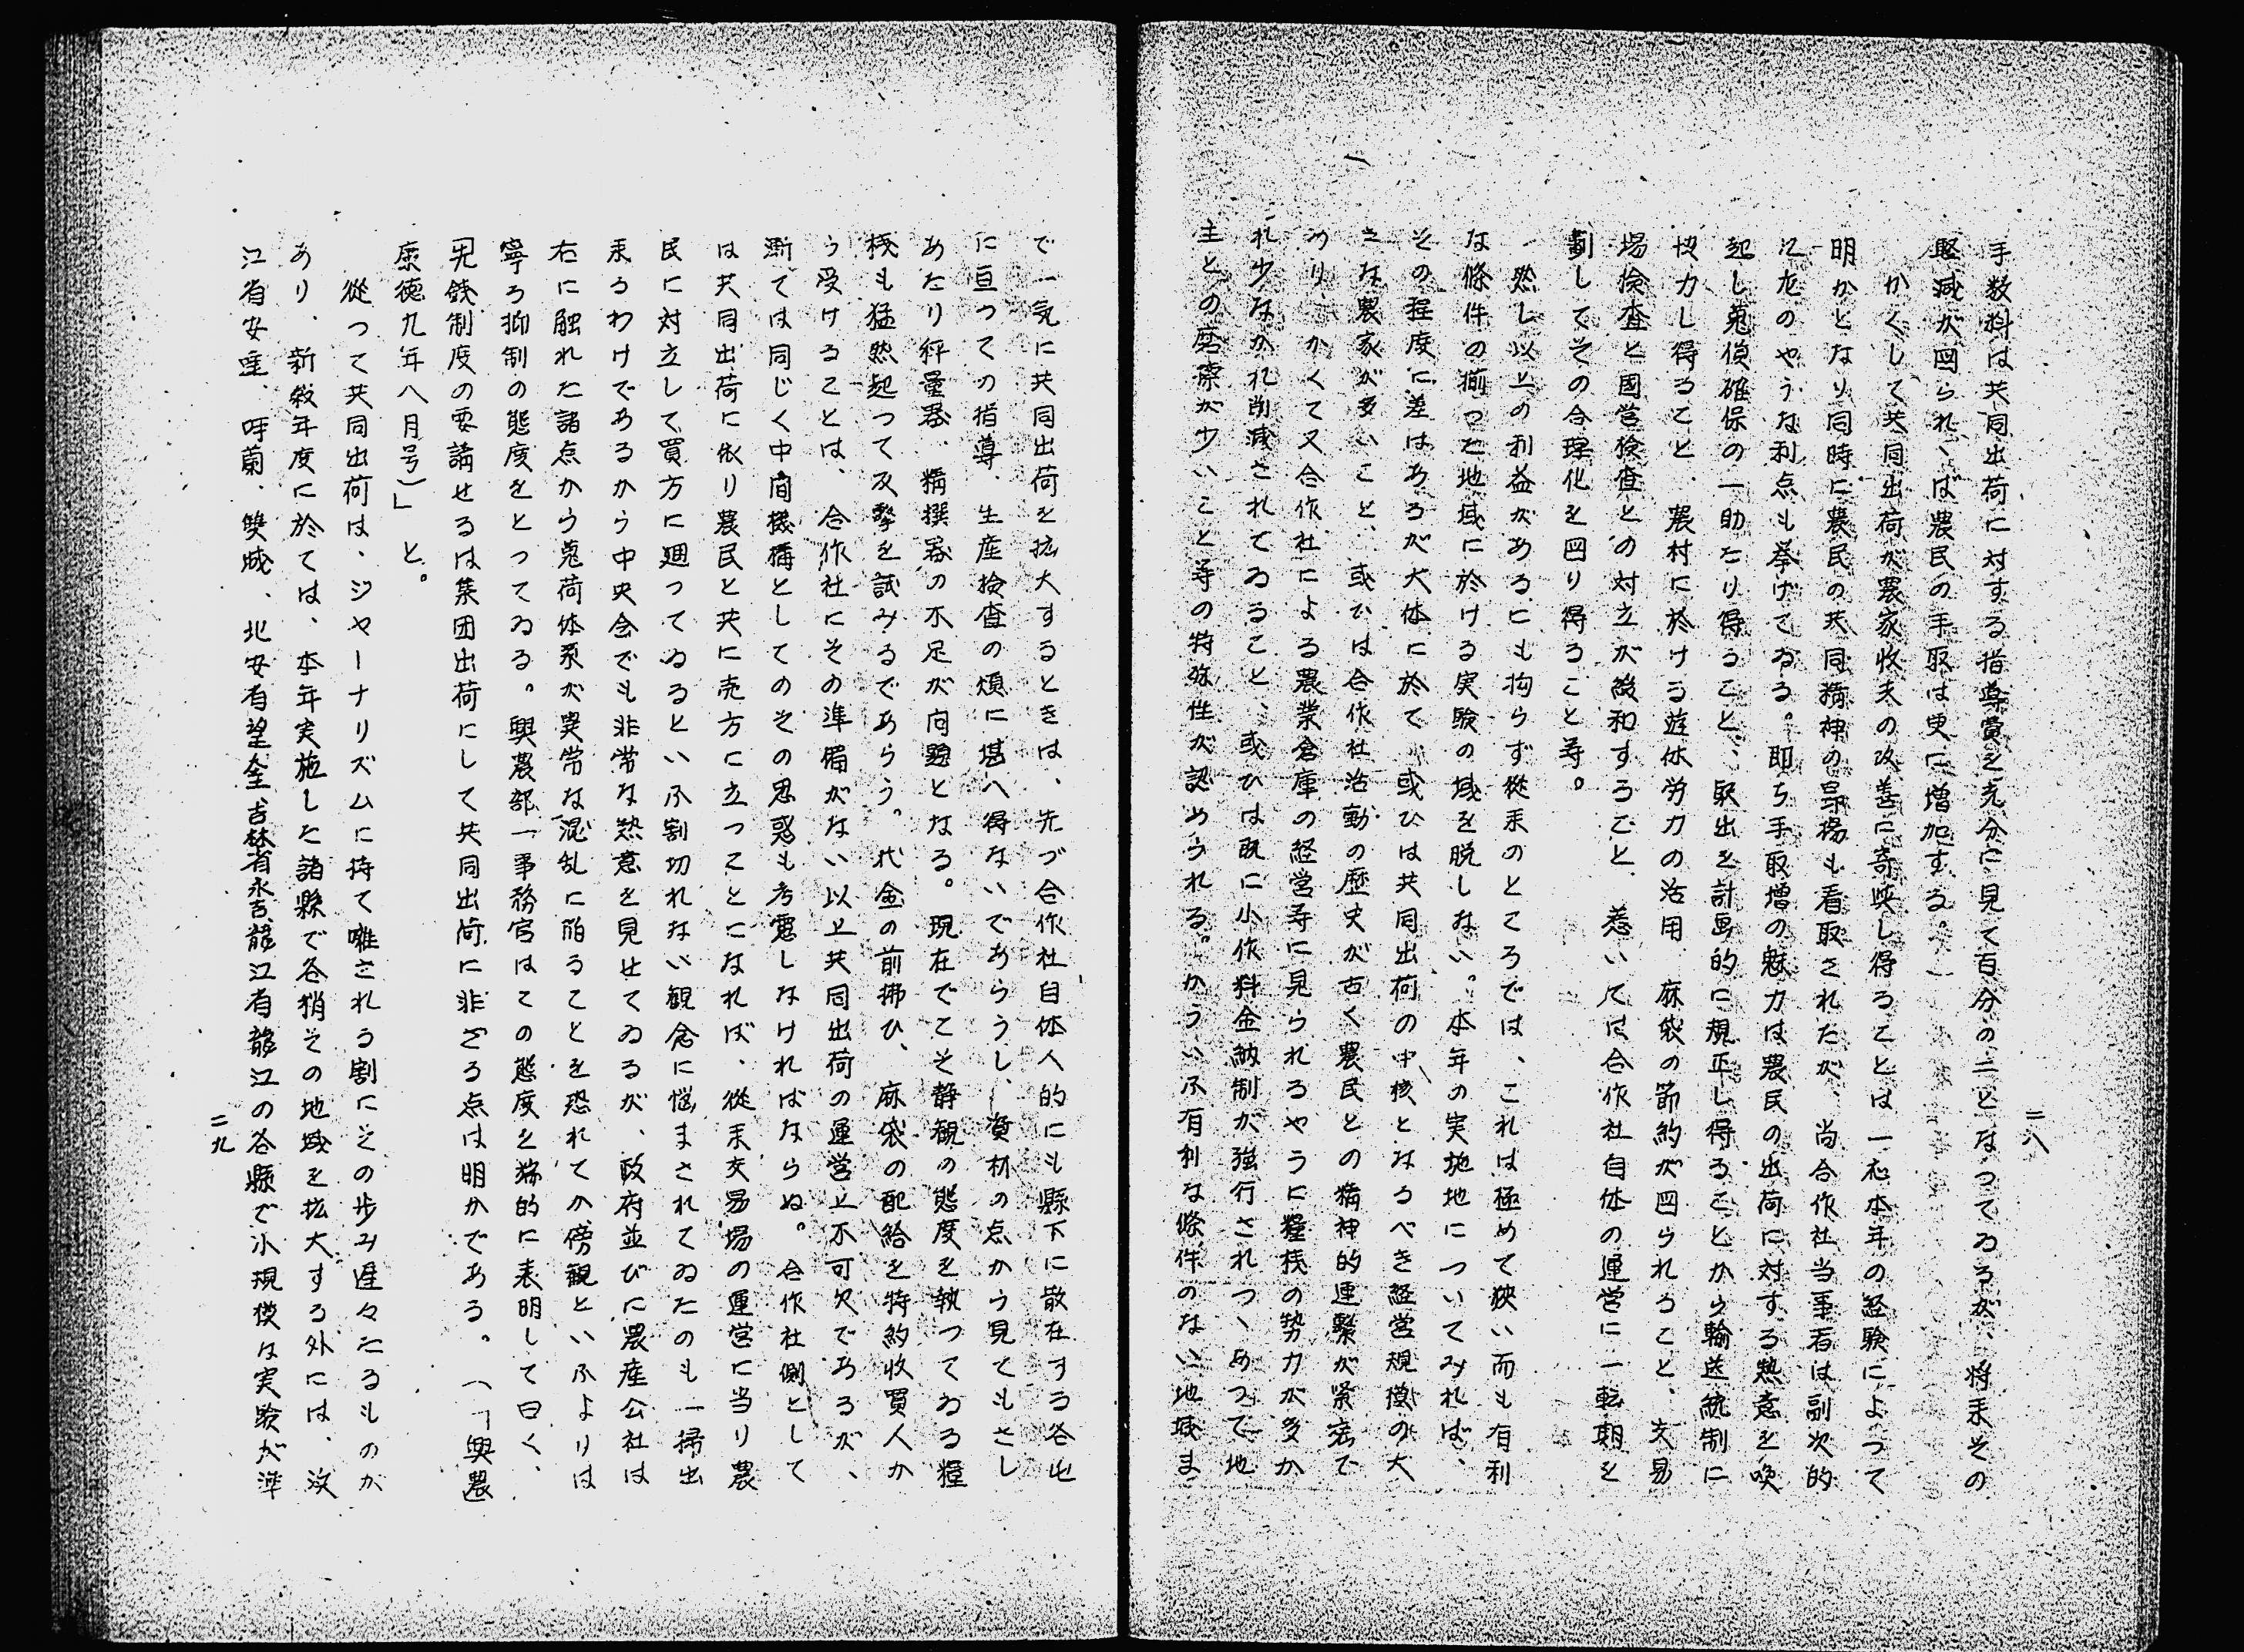 二八
手数料は共同出荷に対する指導費を充分に見て百分の二となつてゐるが、将来その
軽減が図られゝば農民の手取は更に増加する。）
かくして共同出荷が農家收支の改善に寄與し得ることは一応本年の経験によつて
明かとなり同時に農民の共同精神の昂揚も看取されたが、尚合作社当事者は副次的
に左のやうな利点も挙げてゐる。即ち手取増の魅力は農民の出荷に対する熱意を喚
起し蒐貨確保の一助たり得ること、取出を計画的に規正し得ることから輸送統制に
協力し得ること、農村に於ける遊休労力の活用、麻袋の節約が図られること、交易
場検査と國営検査との対立が緩和すること、惹いては合作社自体の運営に一転期を
劃してその合理化を図り得ること等。
然し以上の利益があるにも拘らず従来のところでは、これは極めて狭い而も有利
な條件の揃つた地域に於ける実験の域を脱しない。本年の実施地についてみれば、
その程度に差はあるが大体に於て或ひは共同出荷の中核となるべき経営規模の大
きな農家が多いこと、或ひは合作社活動の歴史が古く農民との精神的連繋が緊密で
あり、かくて又合作社による農業倉庫の経営等に見られるやうに糧棧の勢力が多か
れ少なかれ削減されてゐること、或ひは既に小作料金納制が強行されつゝあつて地
主との磨擦が少いこと等の特殊性が認められる。かういふ有利な條件のない地域ま
で一気に共同出荷を拡大するときは、先づ合作社自体人的にも縣下に散在する各屯
に亘つての指導、生産検査の煩に堪へ得ないであらうし、資材の点から見てもさし
あたり秤量器、精撰器の不足が問題となる。現在でこそ静観の態度を執つてゐる糧
棧も猛然起つて反撃を試みるであらう。代金の前拂ひ、麻袋の配給を特約收買人か
ら受けることは、合作社にその準備がない以上共同出荷の運営上不可欠であるが、
斯ては同じく中間機構としてのその思惑も考慮しなければならぬ。合作社側として
は共同出荷に依り農民と共に売方に立つことになれば、従来交易場の運営に当り農
民に対立して買方に廻つてゐるといふ割切れない観念に悩まされてゐたのも一掃出
来るわけであるから中央会でも非常な熱意を見せてゐるが、政府並びに農産公社は
右に触れた諸点から蒐荷体系が異常な混乱に陥ることを恐れてか傍観といふよりは
寧ろ抑制の態度をとつてゐる。興農部一事務官はこの態度を端的に表明して曰く、
『先銭制度の要請せるは集団出荷にして共同出荷に非ざる点は明かである。（「興農」
康徳九年八月号）」と。
從つて共同出荷は、ジャーナリズムに持て囃される割にその歩み遅々たるものが
あり、新穀年度に於ては、本年実施した諸縣で各稍その地域を拡大する外には、汶
江省安達、呼蘭、雙城、北安省望奎吉林省永吉、龍江省龍江の各縣で小規模な実験が準
二九